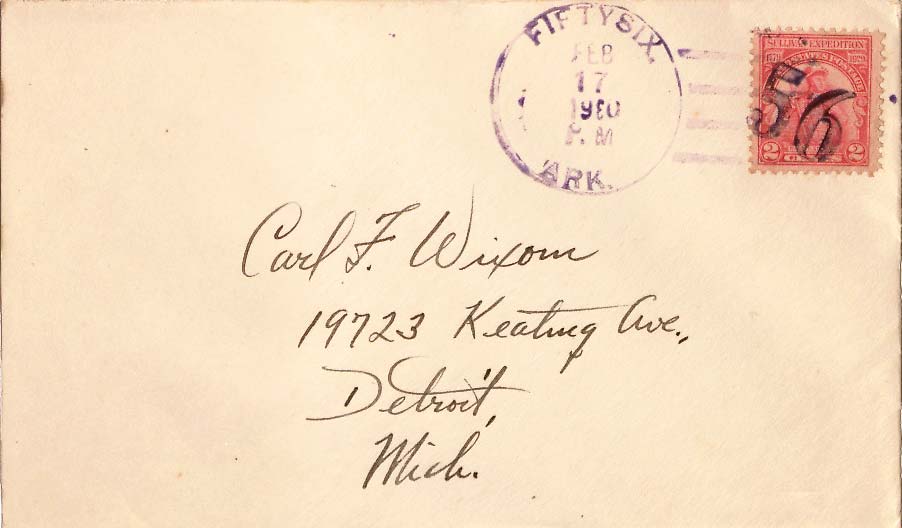 FIFTYSIX,
FEB
17
1930
P.M
ARK.
SULLIVAN EXPEDITION
1779 1929
2 2
56
Carl F. Wixom
19723 Keating Ave.,
Detroit,
Mich.